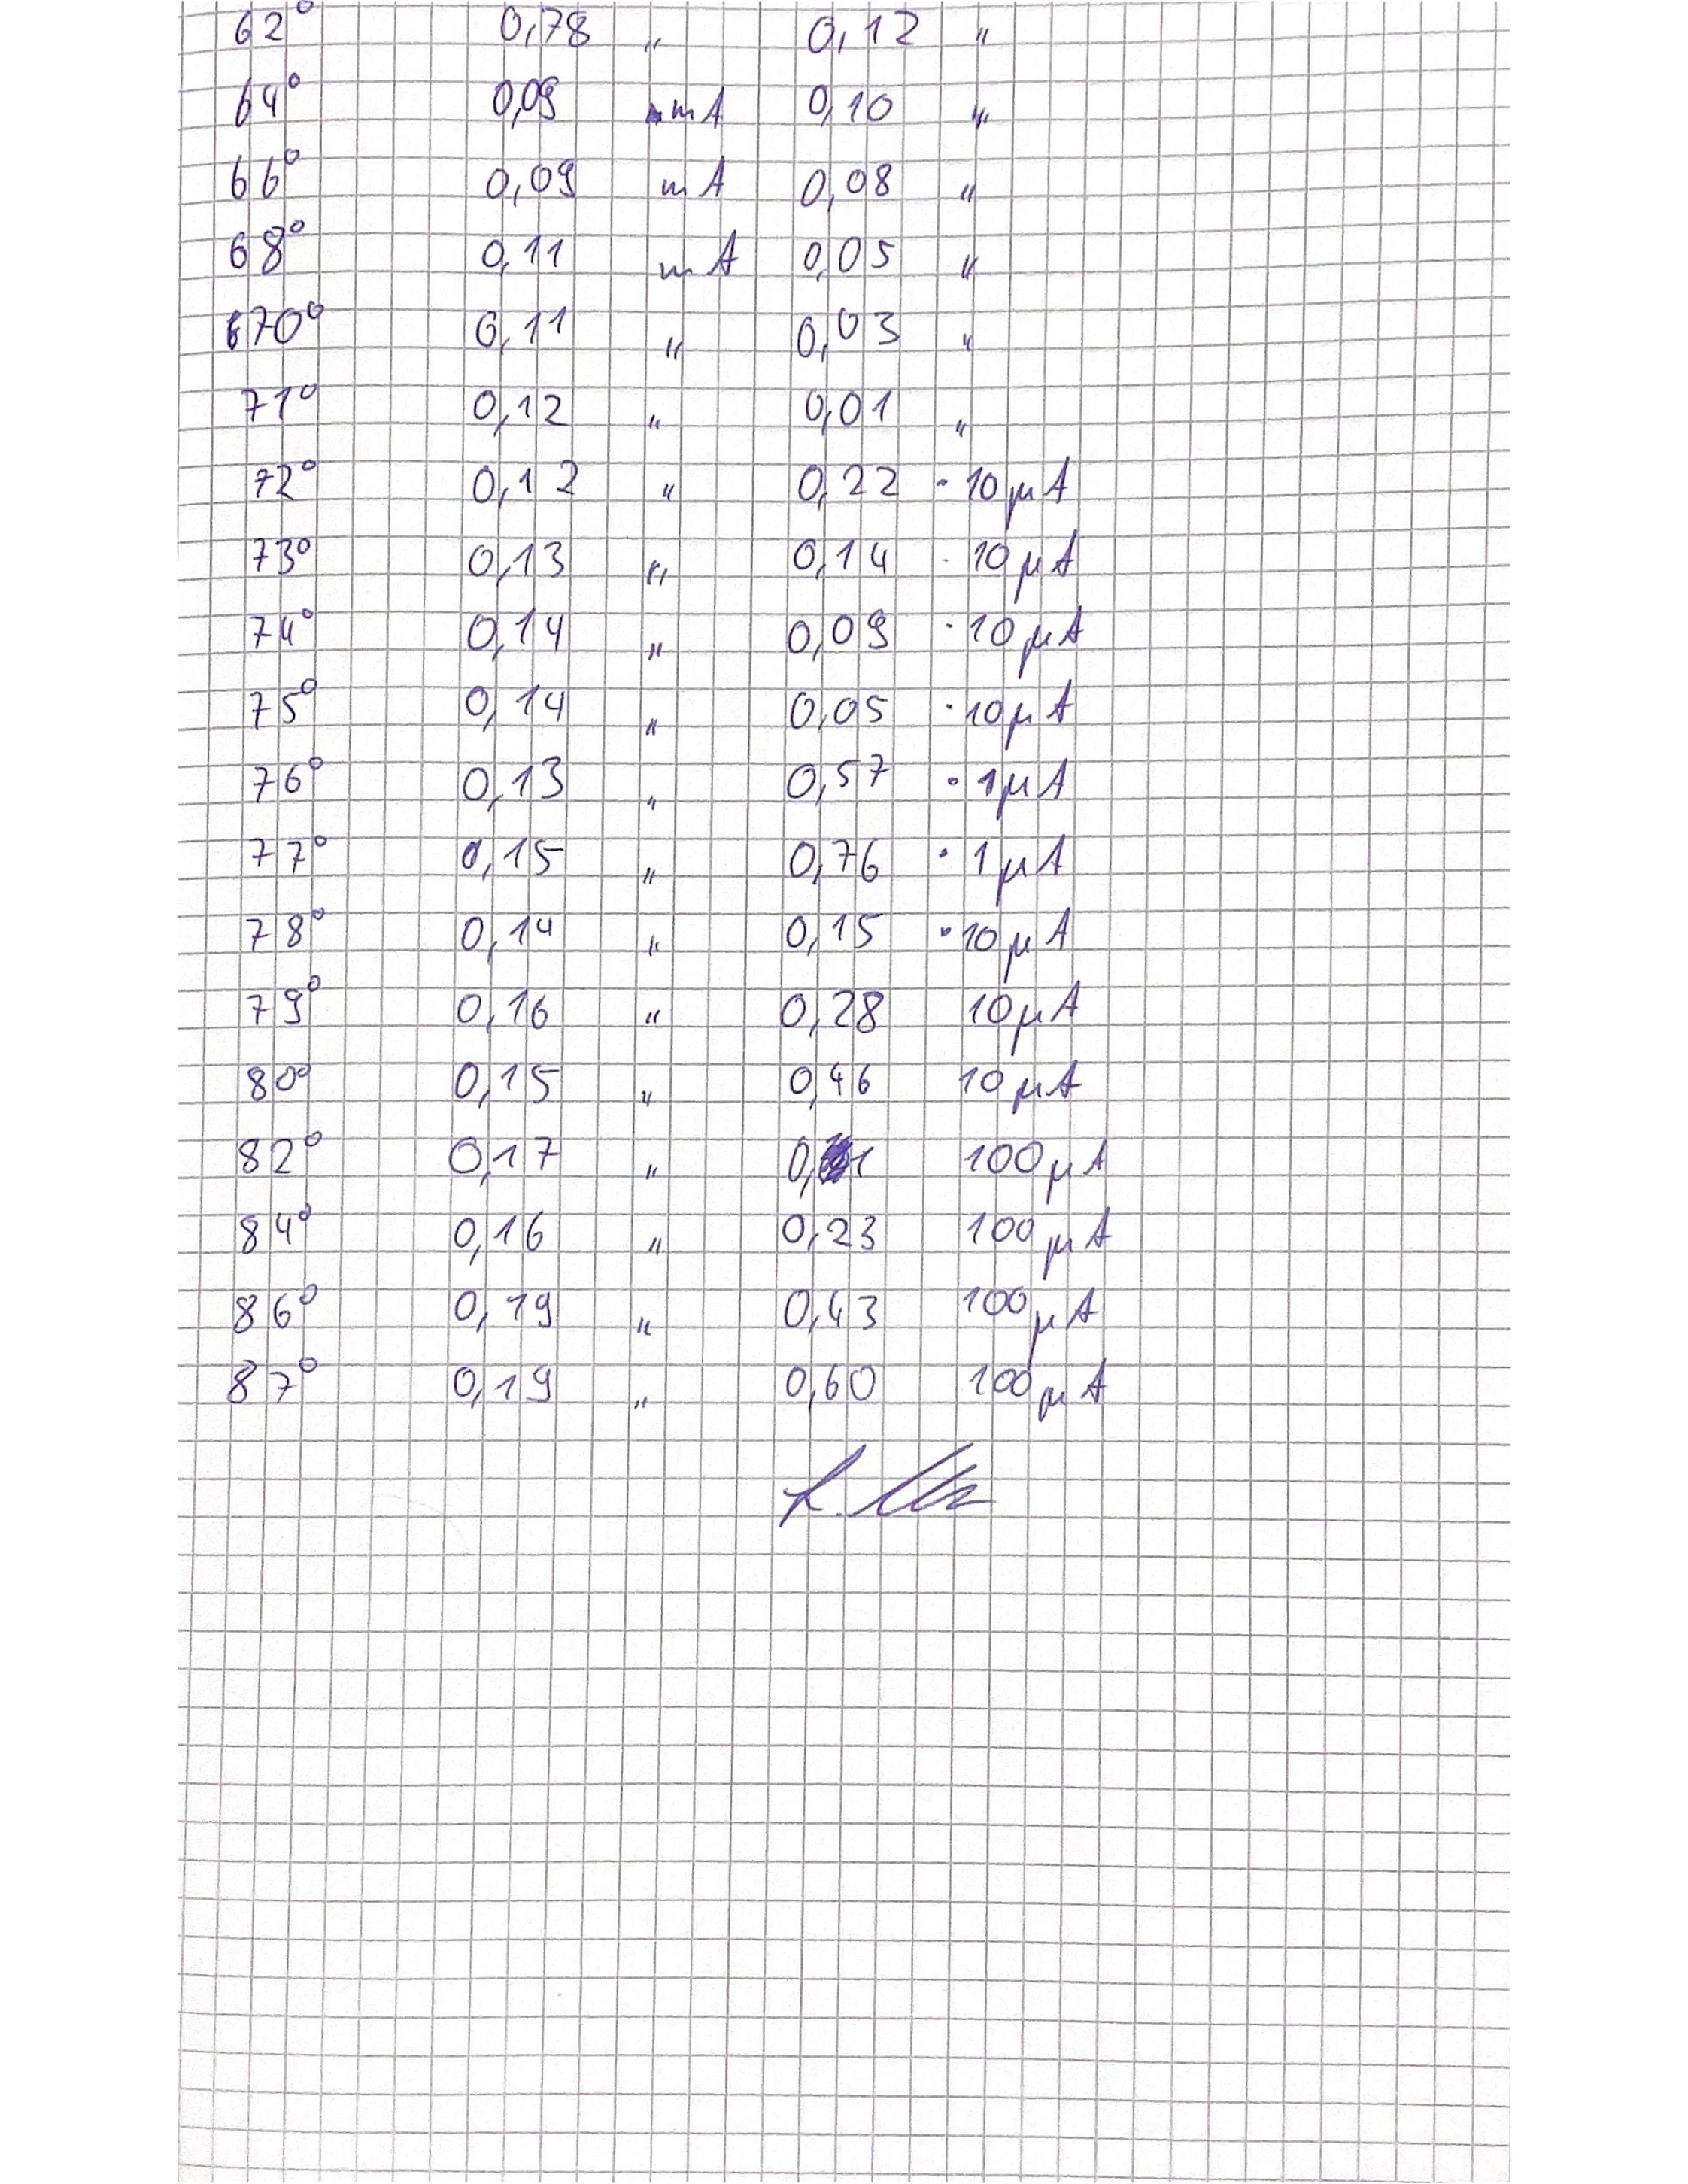 62° 0,78 " 0,12 "
64° 0,09 mA 0,10 "
66° 0,09 mA 0,08 "
68° 0,11 mA 0,05 "
70° 0,11 " 0,03 "
71° 0,12 " 0,01 "
72° 0,12 " 0,22 · 10 µA
73° 0,13 " 0,14 · 10 µA
74° 0,14 " 0,09 · 10 µA
75° 0,14 " 0,05 · 10 µA
76° 0,13 " 0,57 · 1 µA
77° 0,15 " 0,76 · 1 µA
78° 0,14 " 0,15 · 10 µA
79° 0,16 " 0,28 10 µA
80° 0,15 " 0,46 10 µA
82° 0,17 " 100 µA
84° 0,16 " 0,23 100 µA
86° 0,19 " 0,43 100 µA
87° 0,19 " 0,60 100 µA